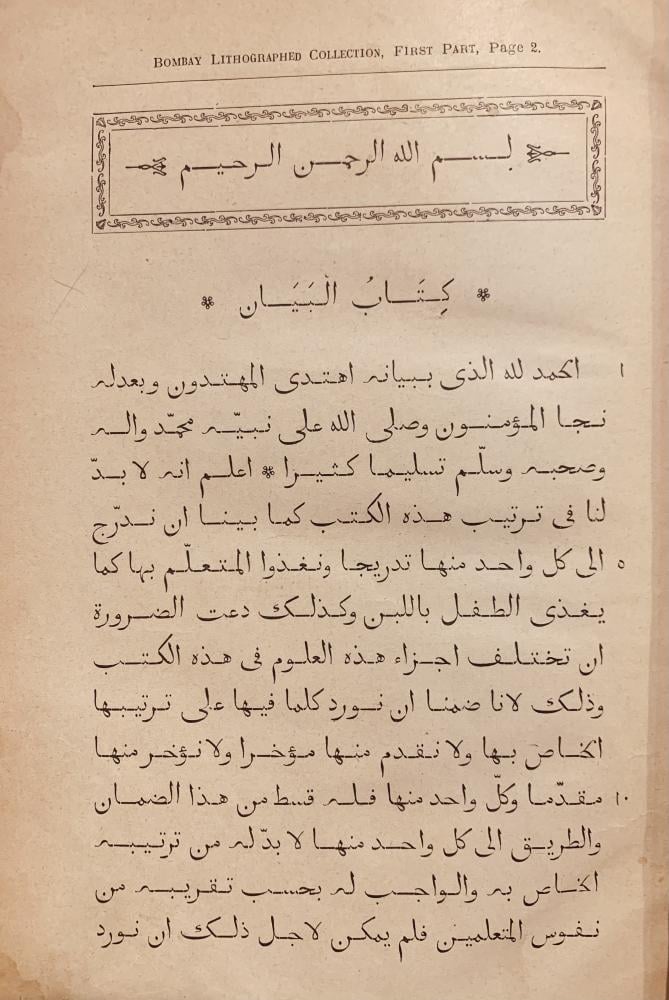 BOMBAY LITHOGRAPHED COLLECTION, FIRST PART, Page 2.
بسم الله الرحمن الرحيم
* كِتَابُ الْبَيَان *
١ الحمد لله الذى ببيانه اهتدى المهتدون وبعدله
نجا المؤمنون وصلى الله على نبيّه محمّد واله
وصحبه وسلّم تسليما كثيرا * اعلم انه لا بدّ
لنا فى ترتيب هذه الكتب كما بينا ان ندرّج
٥ الى كل واحد منها تدريجا ونغذوا المتعلّم بها كما
يغذى الطفل باللبن وكذلك دعت الضرورة
ان تختلف اجزاء هذه العلوم فى هذه الكتب
وذلك لانا ضمنا ان نورد كلما فيها على ترتيبها
الخاص بها ولا نقدم منها مؤخرا ولا نؤخر منها
١٠ مقدّما وكلّ واحد منها فله قسط من هذا الضمان
والطريق الى كل واحد منها لا بدّ له من ترتيبه
الخاص به والواجب له بحسب تقريبه من
نفوس المتعلمين فلم يمكن لاجل ذلك ان نورد